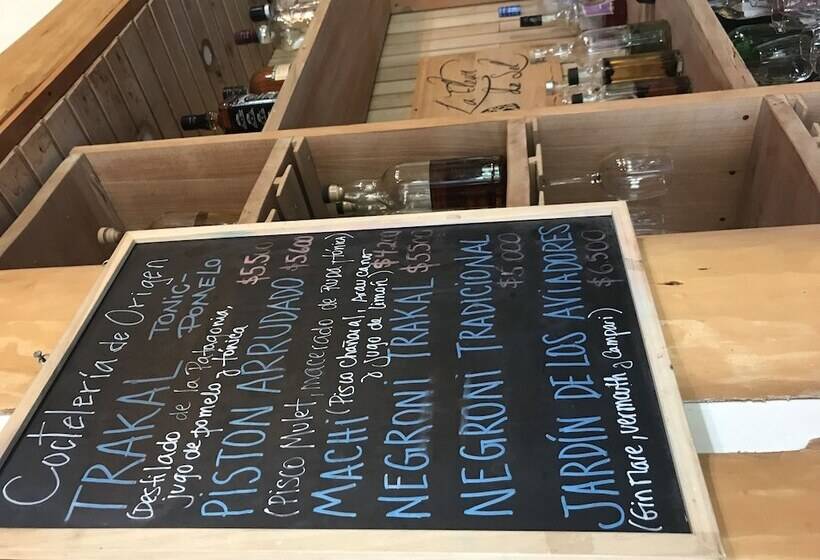 Coctelería de Origen
TRAKAL TONIC-
POMELO
(Destilado de la Patagonia,
jugo de pomelo y tónica
$5500
PISTON ARRUDADO $5600
(Pisco Mulet, macerado de Ruda y tónica)
MACHI (Pisco Chañaral, Araucano
y jugo de limón)
NEGRONI TRAKAL $5500
NEGRONI TRADICIONAL
$5000
JARDÍN DE LOS AVIADORES
$6500
(Gin Mare, vermouth y Campari)
La Flor
de Sal